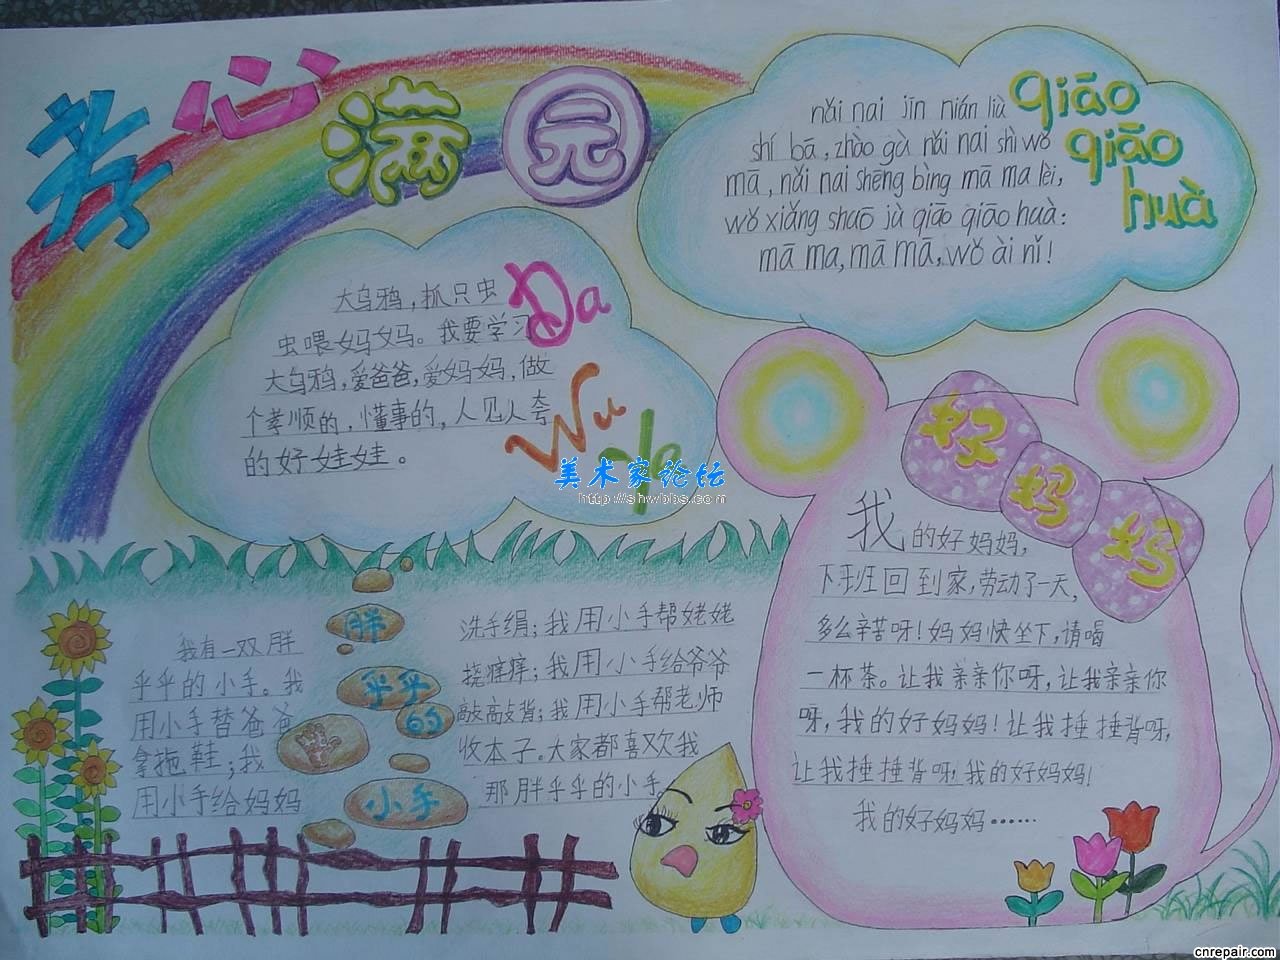 孝心满园
nǎi nai jīn nián liù
shí bā, zhào gù nǎi nai shì wǒ
mā, nǎi nai shēng bìng mā ma lèi,
wǒ xiǎng shuō jù qiāo qiāo huà:
mā ma, mā mā, wǒ ài nǐ!
qiāo
qiāo
huà
大乌鸦，抓只虫
虫喂妈妈。我要学习
大乌鸦，爱爸爸，爱妈妈，做
个孝顺的，懂事的，人见人夸
的好娃娃。
Da
Wu
Ya
美术家论坛
http://shwbbs.com
好妈妈
我的好妈妈，
下班回到家，劳动了一天，
多么辛苦呀！妈妈快坐下，请喝
一杯茶。让我亲亲你呀，让我亲亲你
呀，我的好妈妈！让我捶捶背呀，
让我捶捶背呀，我的好妈妈！
我的好妈妈……
胖
乎乎
的
小手
我有一双胖
乎乎的小手。我
用小手替爸爸
拿拖鞋；我
用小手给妈妈
洗手绢；我用小手帮姥姥
挠痒痒；我用小手给爷爷
敲敲背；我用小手帮老师
收本子。大家都喜欢我
那胖乎乎的小手
cnrepair.com